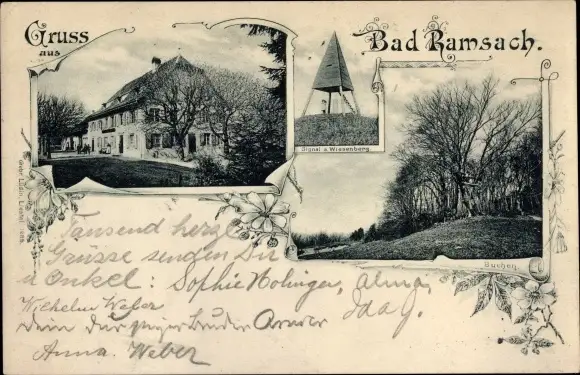 Gruss
aus
Bad Ramsach.
Signal a. Wiesenberg.
Buchen
Gebr. Lüdin, Liestal
Tausend herzl.
Grüsse senden Dir
u Onkel: Sophie Holinger, Alma,
Wilhelm Weber
Ida J.
Anna. Weber